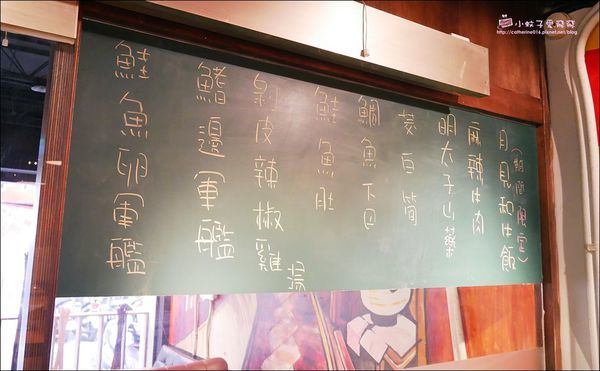 小蚊子愛飛飛
http://catherine014.pixnet.net/blog
(期間限定)
月見和牛飯
麻辣牛肉
明太子山藥
茭白筍
鯛魚下巴
鮭魚肚
剝皮辣椒雞湯
鰭邊軍艦
鮭魚卵軍艦